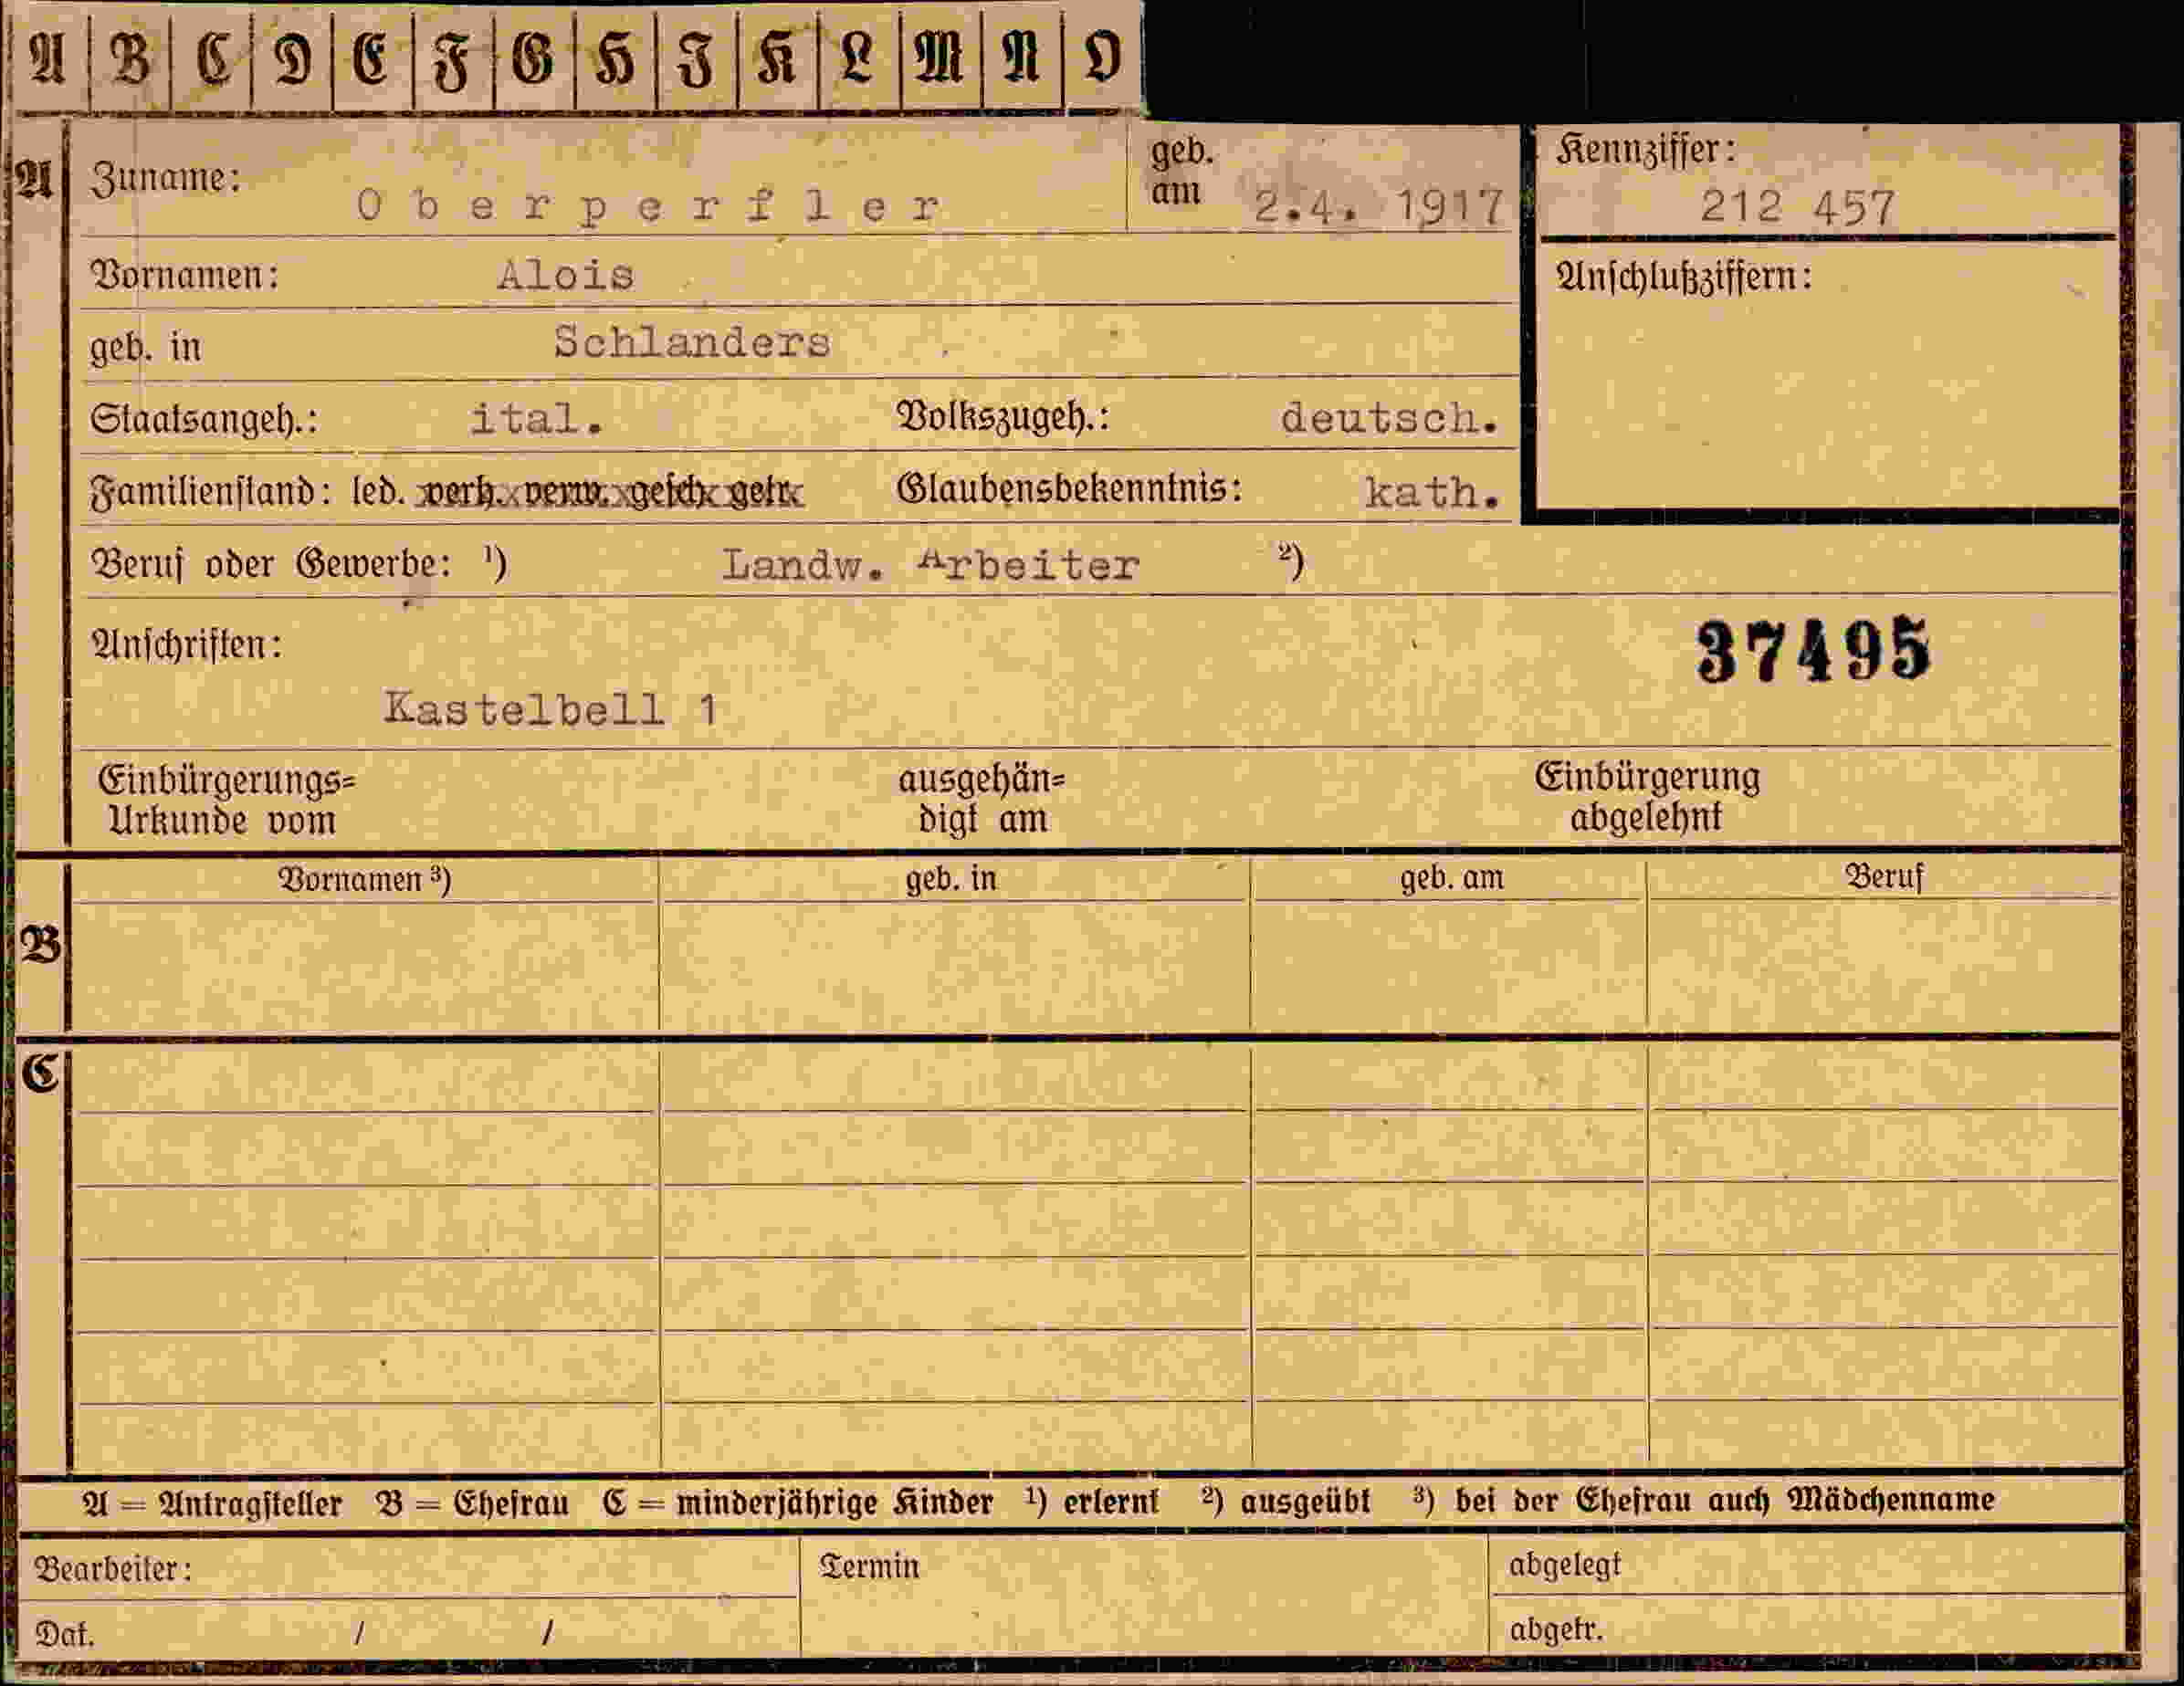 A B C D E F G H I K L M N O
A Zuname: Oberperfler geb. am 2.4. 1917 Kennziffer: 212 457
Vornamen: Alois Anschlußziffern:
geb. in Schlanders
Staatsangeh.: ital. Volkszugeh.: deutsch.
Familienstand: led. verh. verw. gesch. getr. Glaubensbekenntnis: kath.
Beruf oder Gewerbe: ¹) Landw. Arbeiter ²)
Anschriften: 37495
Kastelbell 1
Einbürgerungs= ausgehän= Einbürgerung
Urkunde vom digt am abgelehnt
B Vornamen ³) geb. in geb. am Beruf
C
A = Antragsteller B = Ehefrau C = minderjährige Kinder ¹) erlernt ²) ausgeübt ³) bei der Ehefrau auch Mädchenname
Bearbeiter: Termin abgelegt
Dat. / / abgetr.